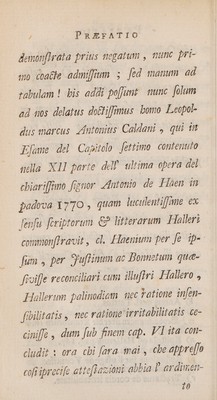 PRÆFATIO
demonstrata prius negatum, nunc pri-
mo coacte admissum; sed manum ad
tabulam! his addi possunt nunc solum
ad nos delatus doctissimus homo Leopol-
dus marcus Antonius Caldani, qui in
Esame del Capitolo settimo contenuto
nella XII parte dell' ultima opera del
chiarissimo signor Antonio de Haen in
padova 1770, quam luculentissime ex
sensu scriptorum & litterarum Halleri
commonstravit, cl. Haenium per se ip-
sum, per Justinum ac Bonnetum quæ-
sivisse reconciliari cum illustri Hallero,
Hallerum palinodiam nec ratione insen-
sibilitatis, nec ratione irritabilitatis ce-
cinisse, dum sub finem cap. VI ita con-
cludit: ora chi sara mai, che appresso
cosi precise attestazioni abbia l' ardimen-
to